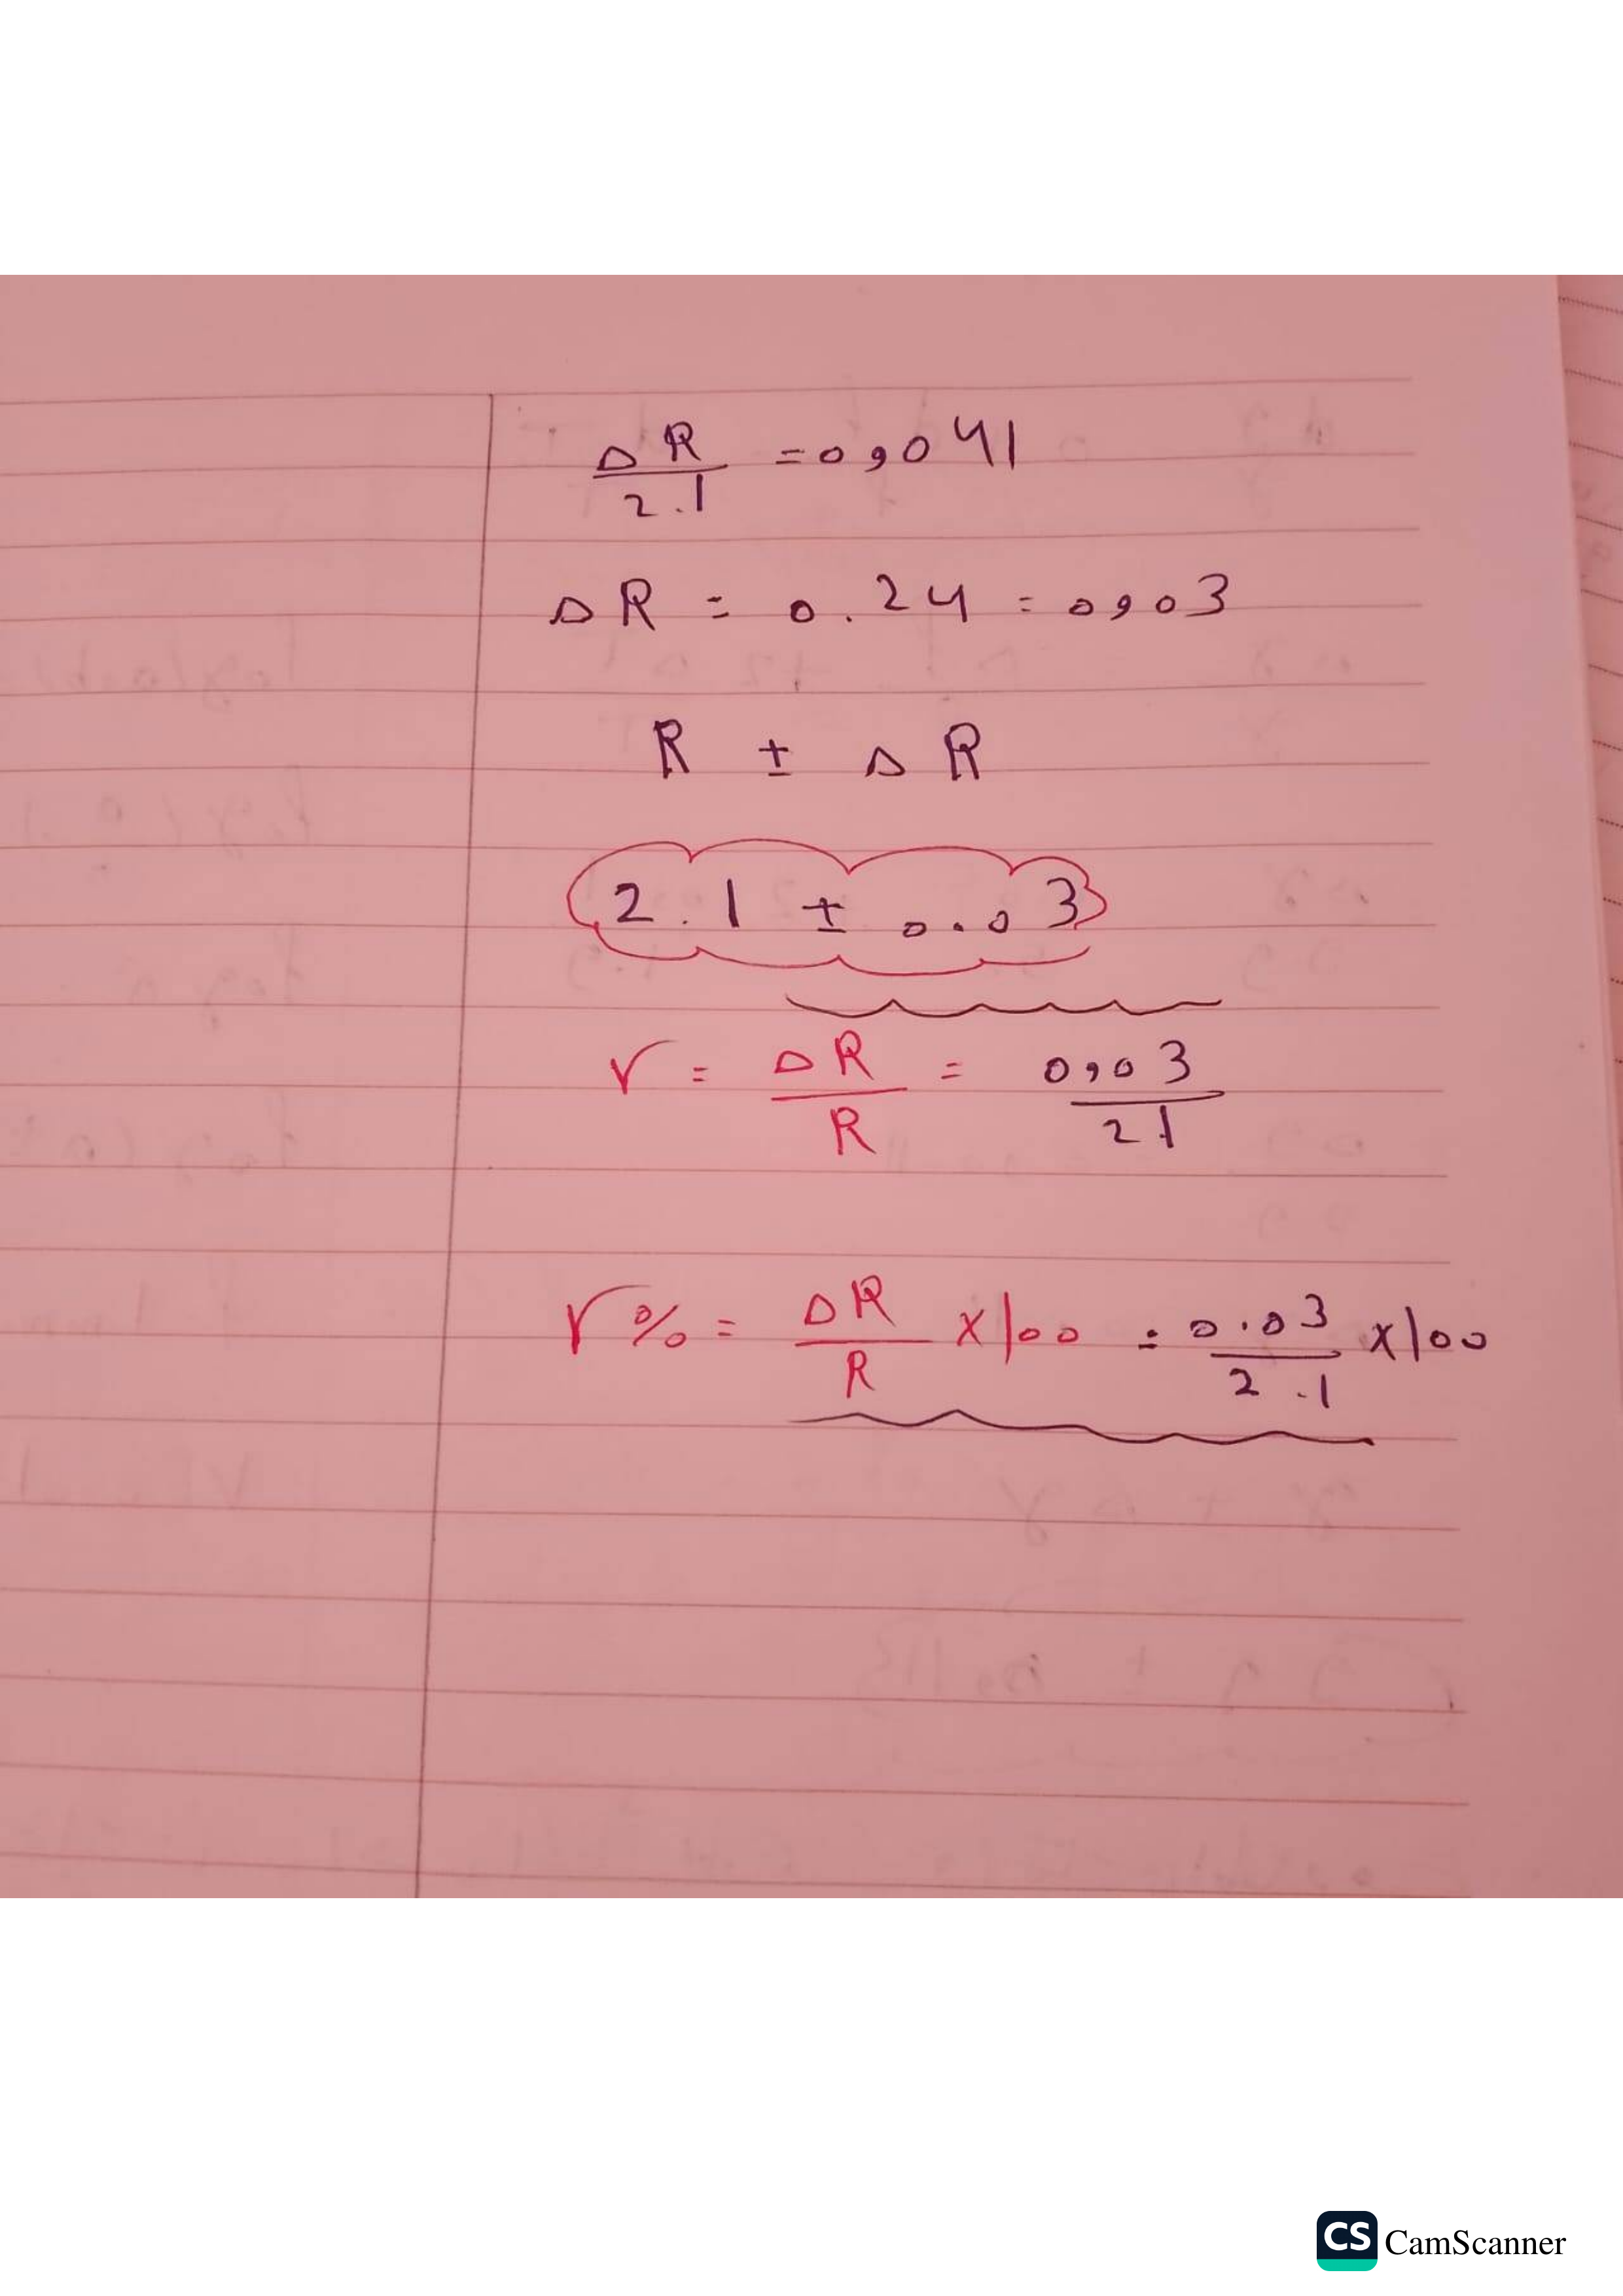 ΔR/2.1 = 0,041
ΔR = 0.24 = 0,03
R ± ΔR
2.1 ± 0.03
r = ΔR/R = 0,03/21
r% = ΔR/R x100 = 0.03/2.1 x100
CS CamScanner